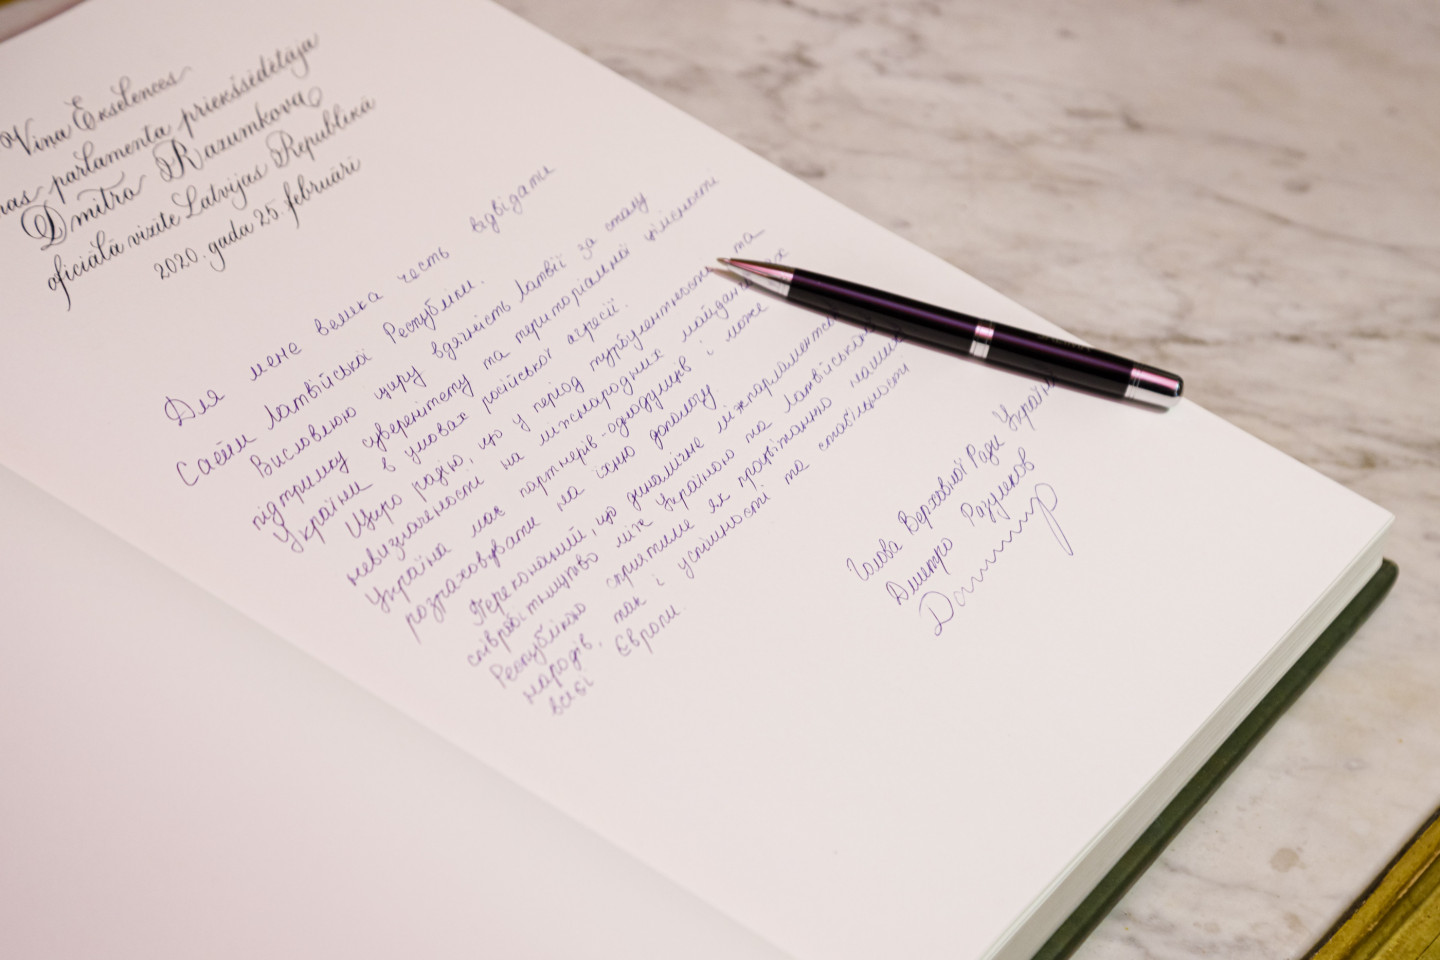 Viņa Ekselences
nas parlamenta priekšsēdētāja
Dmitro Razumkova
oficiālā vizīte Latvijas Republikā
2020. gada 25. februārī
Для мене велика честь відвідати
Саейм Латвійської Республіки.
Висловлюю щиру вдячність Латвії за сталу
підтримку суверенітету та територіальної цілісності
України в умовах російської агресії.
Щиро радію, що у період турбулентності та
невизначеності на міжнародних майданчиках
Україна має партнерів-однодумців і може
розраховувати на їхню допомогу.
Переконаний, що динамічне міжпарламентське
співробітництво між Україною та Латвійською
Республікою сприятиме як процвітанню наших
народів, так і успішності та стабільності
всієї Європи
Голова Верховної Ради України
Дмитро Разумков